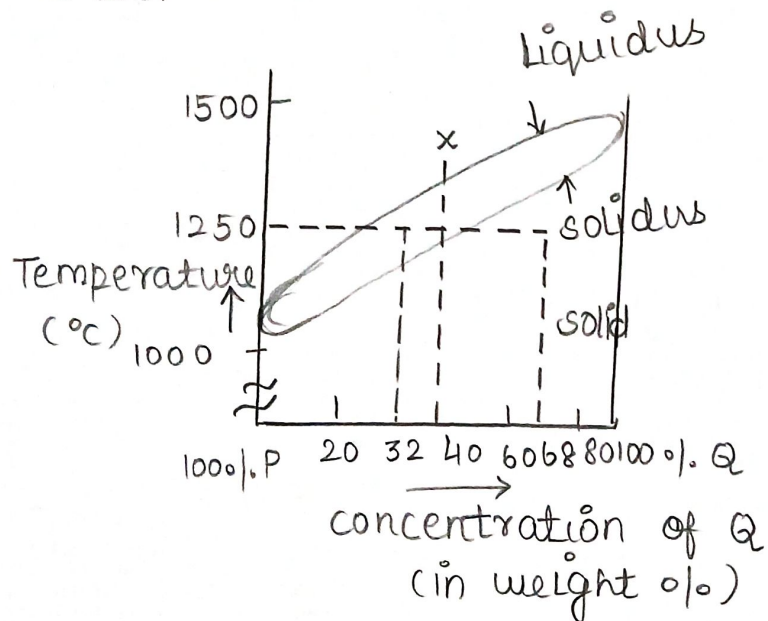 Liquidus
1500
x
1250
solidus
Temperature
(°C)
solid
1000
100%.P 20 32 40 60 68 80 100 %. Q
concentration of Q
(in weight %)